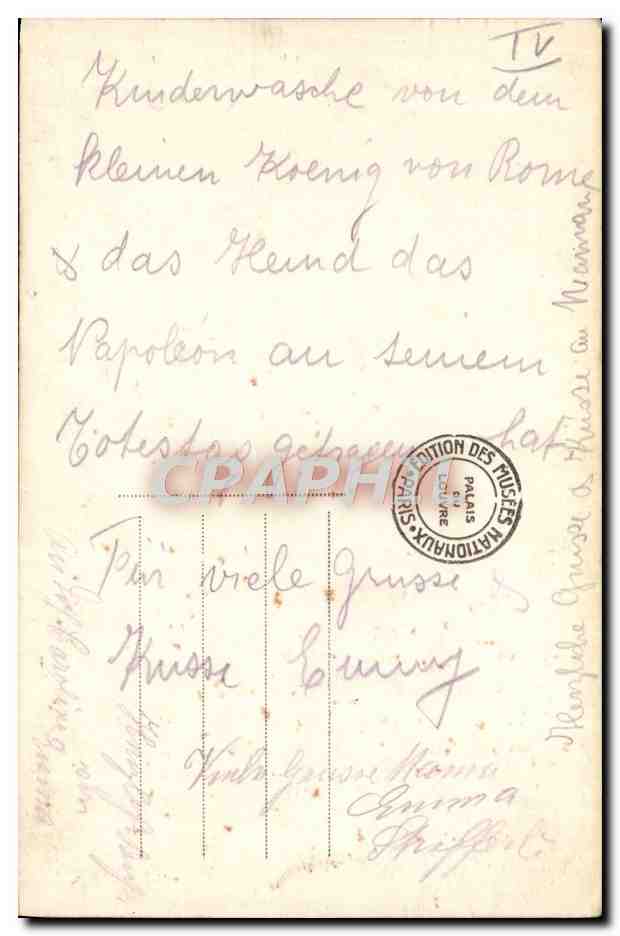 IV
Kinderwäsche von dem
kleinen Koenig von Rome
& das Hemd das
Napoléon an seinem
Totestag getragen hat
CPARHI
EDITION DES MUSÉES NATIONAUX • PARIS •
PALAIS
DU
LOUVRE
Für viele Grüsse &
Küsse Emmy
Viele Grüsse
Emma
Herzliche Grüsse & Küsse an Maman